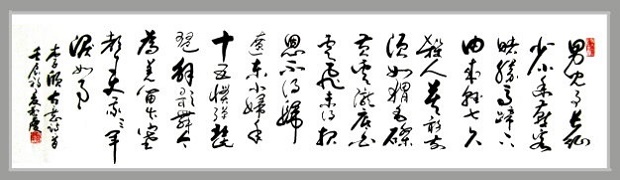 男兒事長征
少小幽燕客
賭勝馬蹄下
由來輕七尺
殺人莫敢前
須如猬毛磔
黄雲隴底白
雲飛未得報
恩不得歸
遼東小婦年
十五慣彈琵
琶解歌舞今
為羌笛出塞
聲使我三軍
淚如雨
李頎古意詩